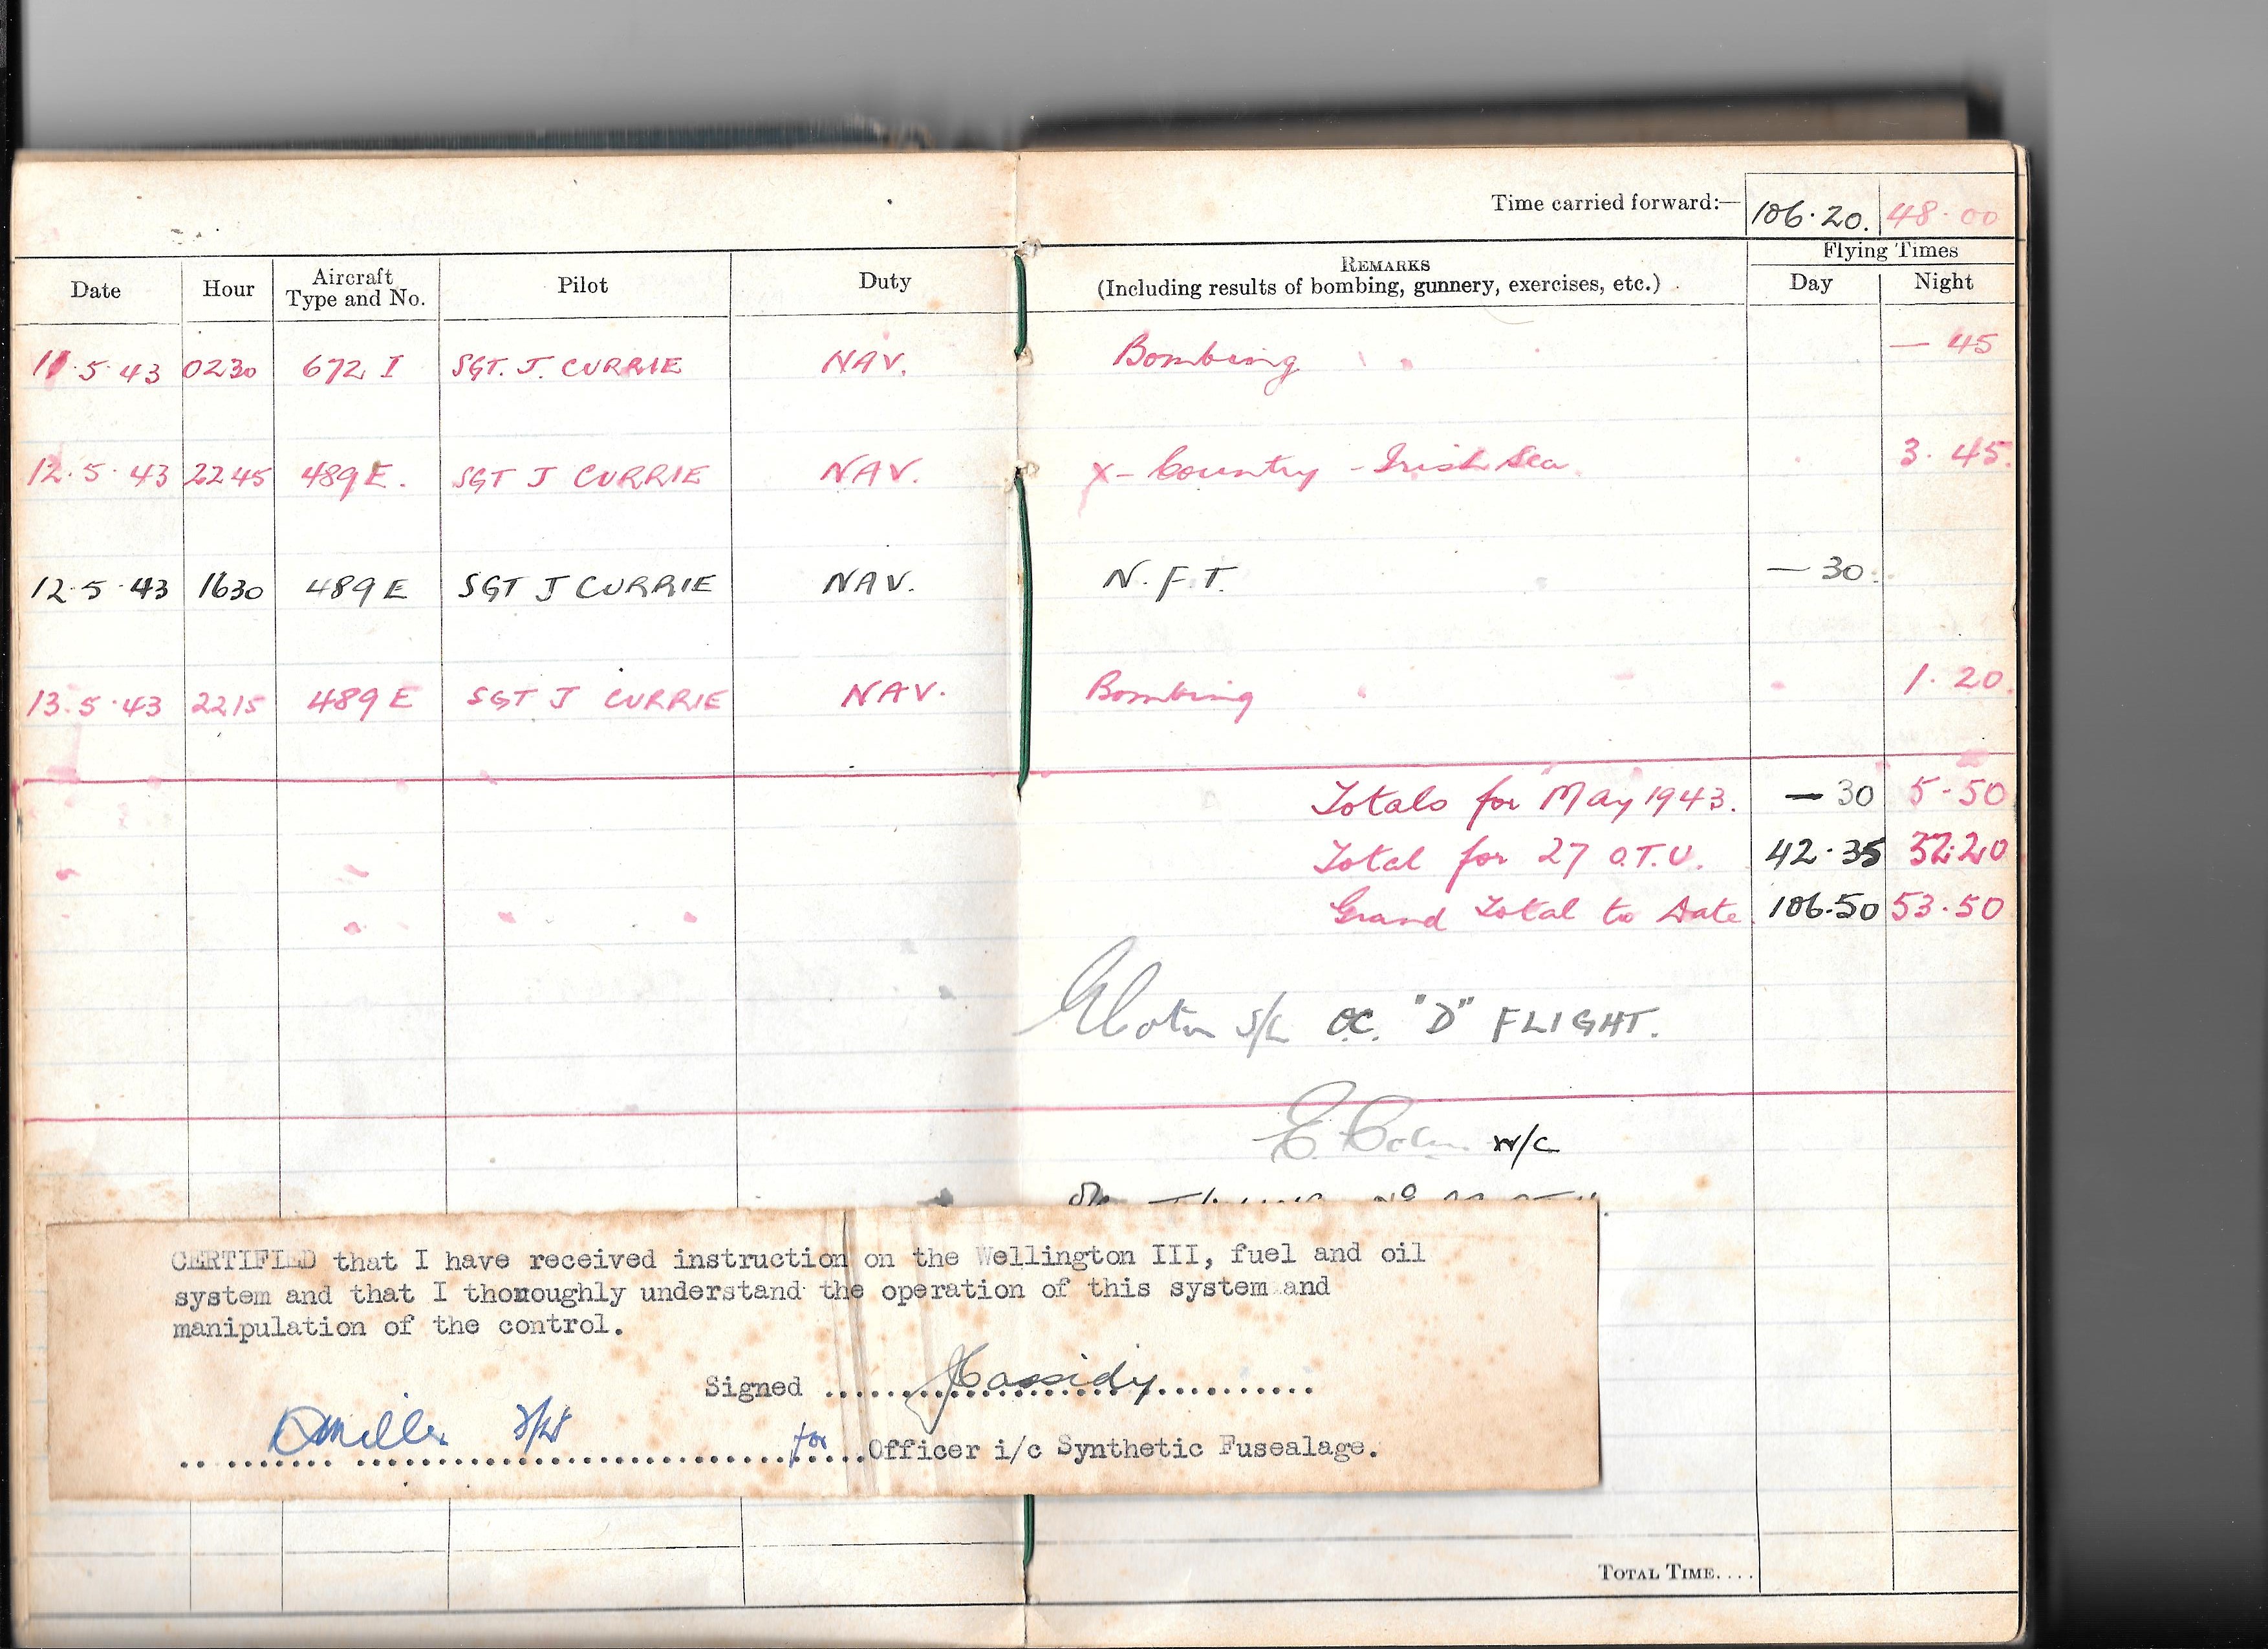 Time carried forward:— 106·20. 48·00
Flying Times
Date Hour Aircraft Type and No. Pilot Duty REMARKS (Including results of bombing, gunnery, exercises, etc.) Day Night
11·5·43 0230 672 I SGT. J. CURRIE NAV. Bombing — 45
12·5·43 2245 489 E. SGT J CURRIE NAV. X-Country - Irish Sea 3·45.
12·5·43 1630 489 E SGT J CURRIE NAV. N.F.T. — 30.
13·5·43 2215 489 E SGT J CURRIE NAV. Bombing 1·20.
Totals for May 1943. — 30 5-50
Total for 27 O.T.U. 42·35 37·20
Grand Total to Date 106·50 53·50
S/L O.C. "D" FLIGHT.
E. W/C
CERTIFIED that I have received instruction on the Wellington III, fuel and oil
system and that I thoroughly understand the operation of this system and
manipulation of the control.
Signed ..... JCassidy ..........
DMiller for Officer i/c Synthetic Fusealage.
TOTAL TIME....